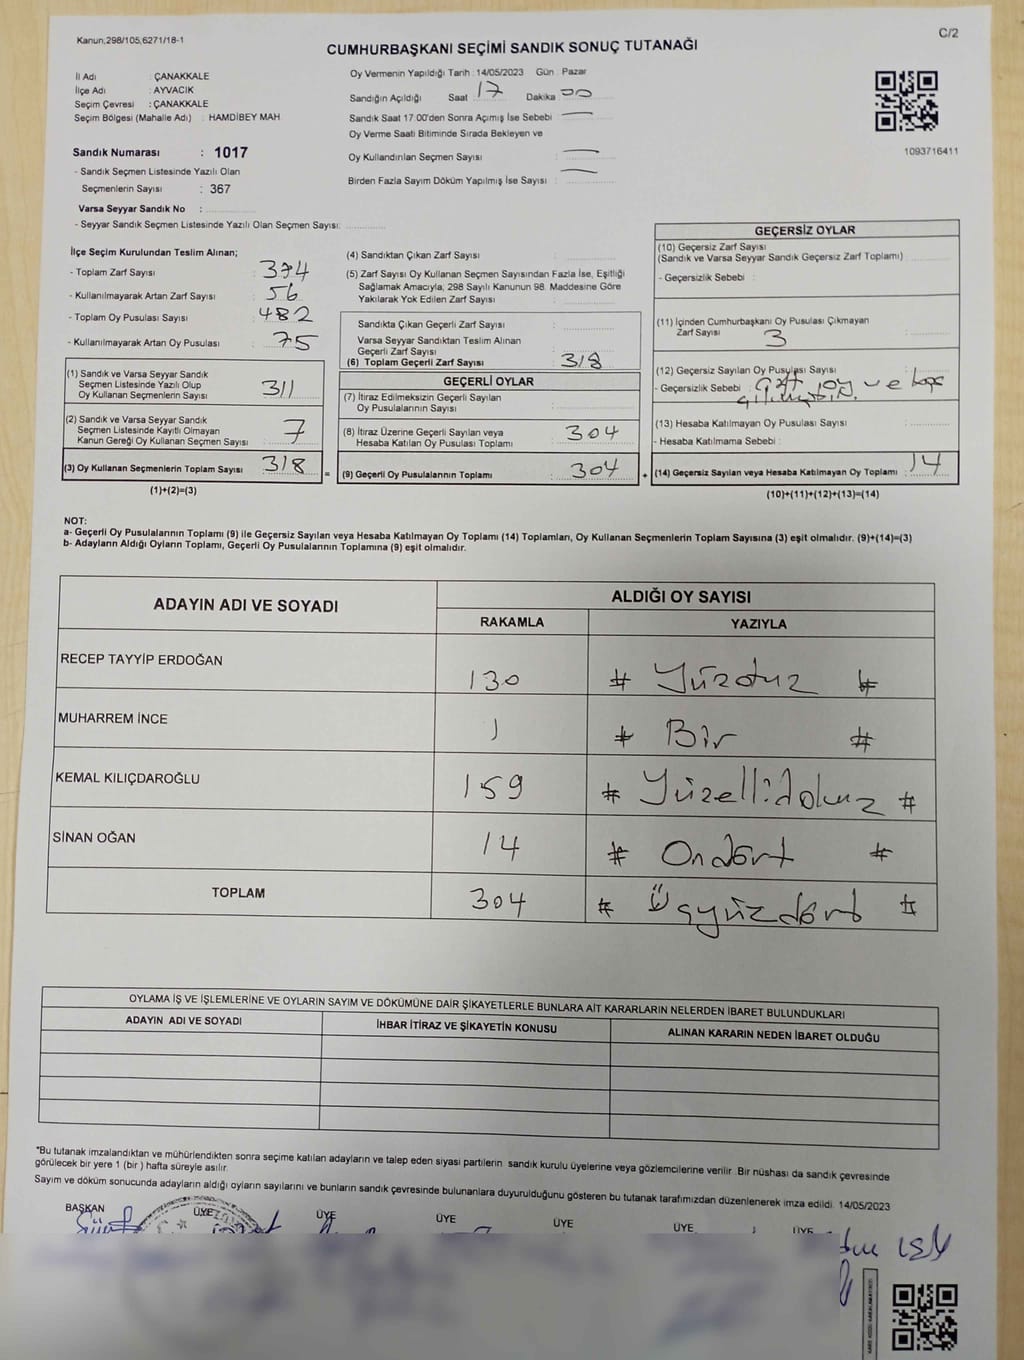 Kanun,298/105,6271/18-1
C/2
CUMHURBAŞKANI SEÇİMİ SANDIK SONUÇ TUTANAĞI
İl Adı : ÇANAKKALE
İlçe Adı : AYVACIK
Seçim Çevresi : ÇANAKKALE
Seçim Bölgesi (Mahalle Adı) : HAMDİBEY MAH
Sandık Numarası : 1017
- Sandık Seçmen Listesinde Yazılı Olan
Seçmenlerin Sayısı : 367
Varsa Seyyar Sandık No :
- Seyyar Sandık Seçmen Listesinde Yazılı Olan Seçmen Sayısı:
Oy Vermenin Yapıldığı Tarih : 14/05/2023 Gün : Pazar
Sandığın Açıldığı Saat : 17 Dakika : 00
Sandık Saat 17:00'den Sonra Açımış İse Sebebi : —
Oy Verme Saati Bitiminde Sırada Bekleyen ve
Oy Kullandırılan Seçmen Sayısı : —
Birden Fazla Sayım Döküm Yapılmış İse Sayısı : —
1093716411
İlçe Seçim Kurulundan Teslim Alınan;
- Toplam Zarf Sayısı : 374
- Kullanılmayarak Artan Zarf Sayısı : 56
- Toplam Oy Pusulası Sayısı : 482
- Kullanılmayarak Artan Oy Pusulası : 75
(1) Sandık ve Varsa Seyyar Sandık
Seçmen Listesinde Yazılı Olup
Oy Kullanan Seçmenlerin Sayısı : 311
(2) Sandık ve Varsa Seyyar Sandık
Seçmen Listesinde Kayıtlı Olmayan
Kanun Gereği Oy Kullanan Seçmen Sayısı : 7
(3) Oy Kullanan Seçmenlerin Toplam Sayısı : 318
(1)+(2)=(3)
(4) Sandıktan Çıkan Zarf Sayısı :
(5) Zarf Sayısı Oy Kullanan Seçmen Sayısından Fazla İse, Eşitliği
Sağlamak Amacıyla; 298 Sayılı Kanunun 98. Maddesine Göre
Yakılarak Yok Edilen Zarf Sayısı :
Sandıkta Çıkan Geçerli Zarf Sayısı :
Varsa Seyyar Sandıktan Teslim Alınan
Geçerli Zarf Sayısı :
(6) Toplam Geçerli Zarf Sayısı : 318
GEÇERLİ OYLAR
(7) İtiraz Edilmeksizin Geçerli Sayılan
Oy Pusulalarının Sayısı :
(8) İtiraz Üzerine Geçerli Sayılan veya
Hesaba Katılan Oy Pusulası Toplamı : 304
= (9) Geçerli Oy Pusulalarının Toplamı : 304 +
GEÇERSİZ OYLAR
(10) Geçersiz Zarf Sayısı
(Sandık ve Varsa Seyyar Sandık Geçersiz Zarf Toplamı) :
- Geçersizlik Sebebi :
(11) İçinden Cumhurbaşkanı Oy Pusulası Çıkmayan
Zarf Sayısı : 3
(12) Geçersiz Sayılan Oy Pusulası Sayısı :
- Geçersizlik Sebebi : Çift oy ve boş
(13) Hesaba Katılmayan Oy Pusulası Sayısı :
- Hesaba Katılmama Sebebi :
(14) Geçersiz Sayılan veya Hesaba Katılmayan Oy Toplamı : 14
(10)+(11)+(12)+(13)=(14)
NOT:
a- Geçerli Oy Pusulalarının Toplamı (9) ile Geçersiz Sayılan veya Hesaba Katılmayan Oy Toplamı (14) Toplamları, Oy Kullanan Seçmenlerin Toplam Sayısına (3) eşit olmalıdır. (9)+(14)=(3)
b- Adayların Aldığı Oyların Toplamı, Geçerli Oy Pusulalarının Toplamına (9) eşit olmalıdır.
ADAYIN ADI VE SOYADI
ALDIĞI OY SAYISI
RAKAMLA YAZIYLA
RECEP TAYYİP ERDOĞAN 130 # Yüzotuz #
MUHARREM İNCE 1 # Bir #
KEMAL KILIÇDAROĞLU 159 # Yüzellidokuz #
SİNAN OĞAN 14 # Ondört #
TOPLAM 304 # Üçyüzdört #
OYLAMA İŞ VE İŞLEMLERİNE VE OYLARIN SAYIM VE DÖKÜMÜNE DAİR ŞİKAYETLERLE BUNLARA AİT KARARLARIN NELERDEN İBARET BULUNDUKLARI
ADAYIN ADI VE SOYADI İHBAR İTİRAZ VE ŞİKAYETİN KONUSU ALINAN KARARIN NEDEN İBARET OLDUĞU
*Bu tutanak imzalandıktan ve mühürlendikten sonra seçime katılan adayların ve talep eden siyasi partilerin sandık kurulu üyelerine veya gözlemcilerine verilir. Bir nüshası da sandık çevresinde
görülecek bir yere 1 (bir ) hafta süreyle asılır.
Sayım ve döküm sonucunda adayların aldığı oyların sayılarını ve bunların sandık çevresinde bulunanlara duyurulduğunu gösteren bu tutanak tarafımızdan düzenlenerek imza edildi. 14/05/2023
BAŞKAN ÜYE ÜYE ÜYE ÜYE ÜYE ÜYE